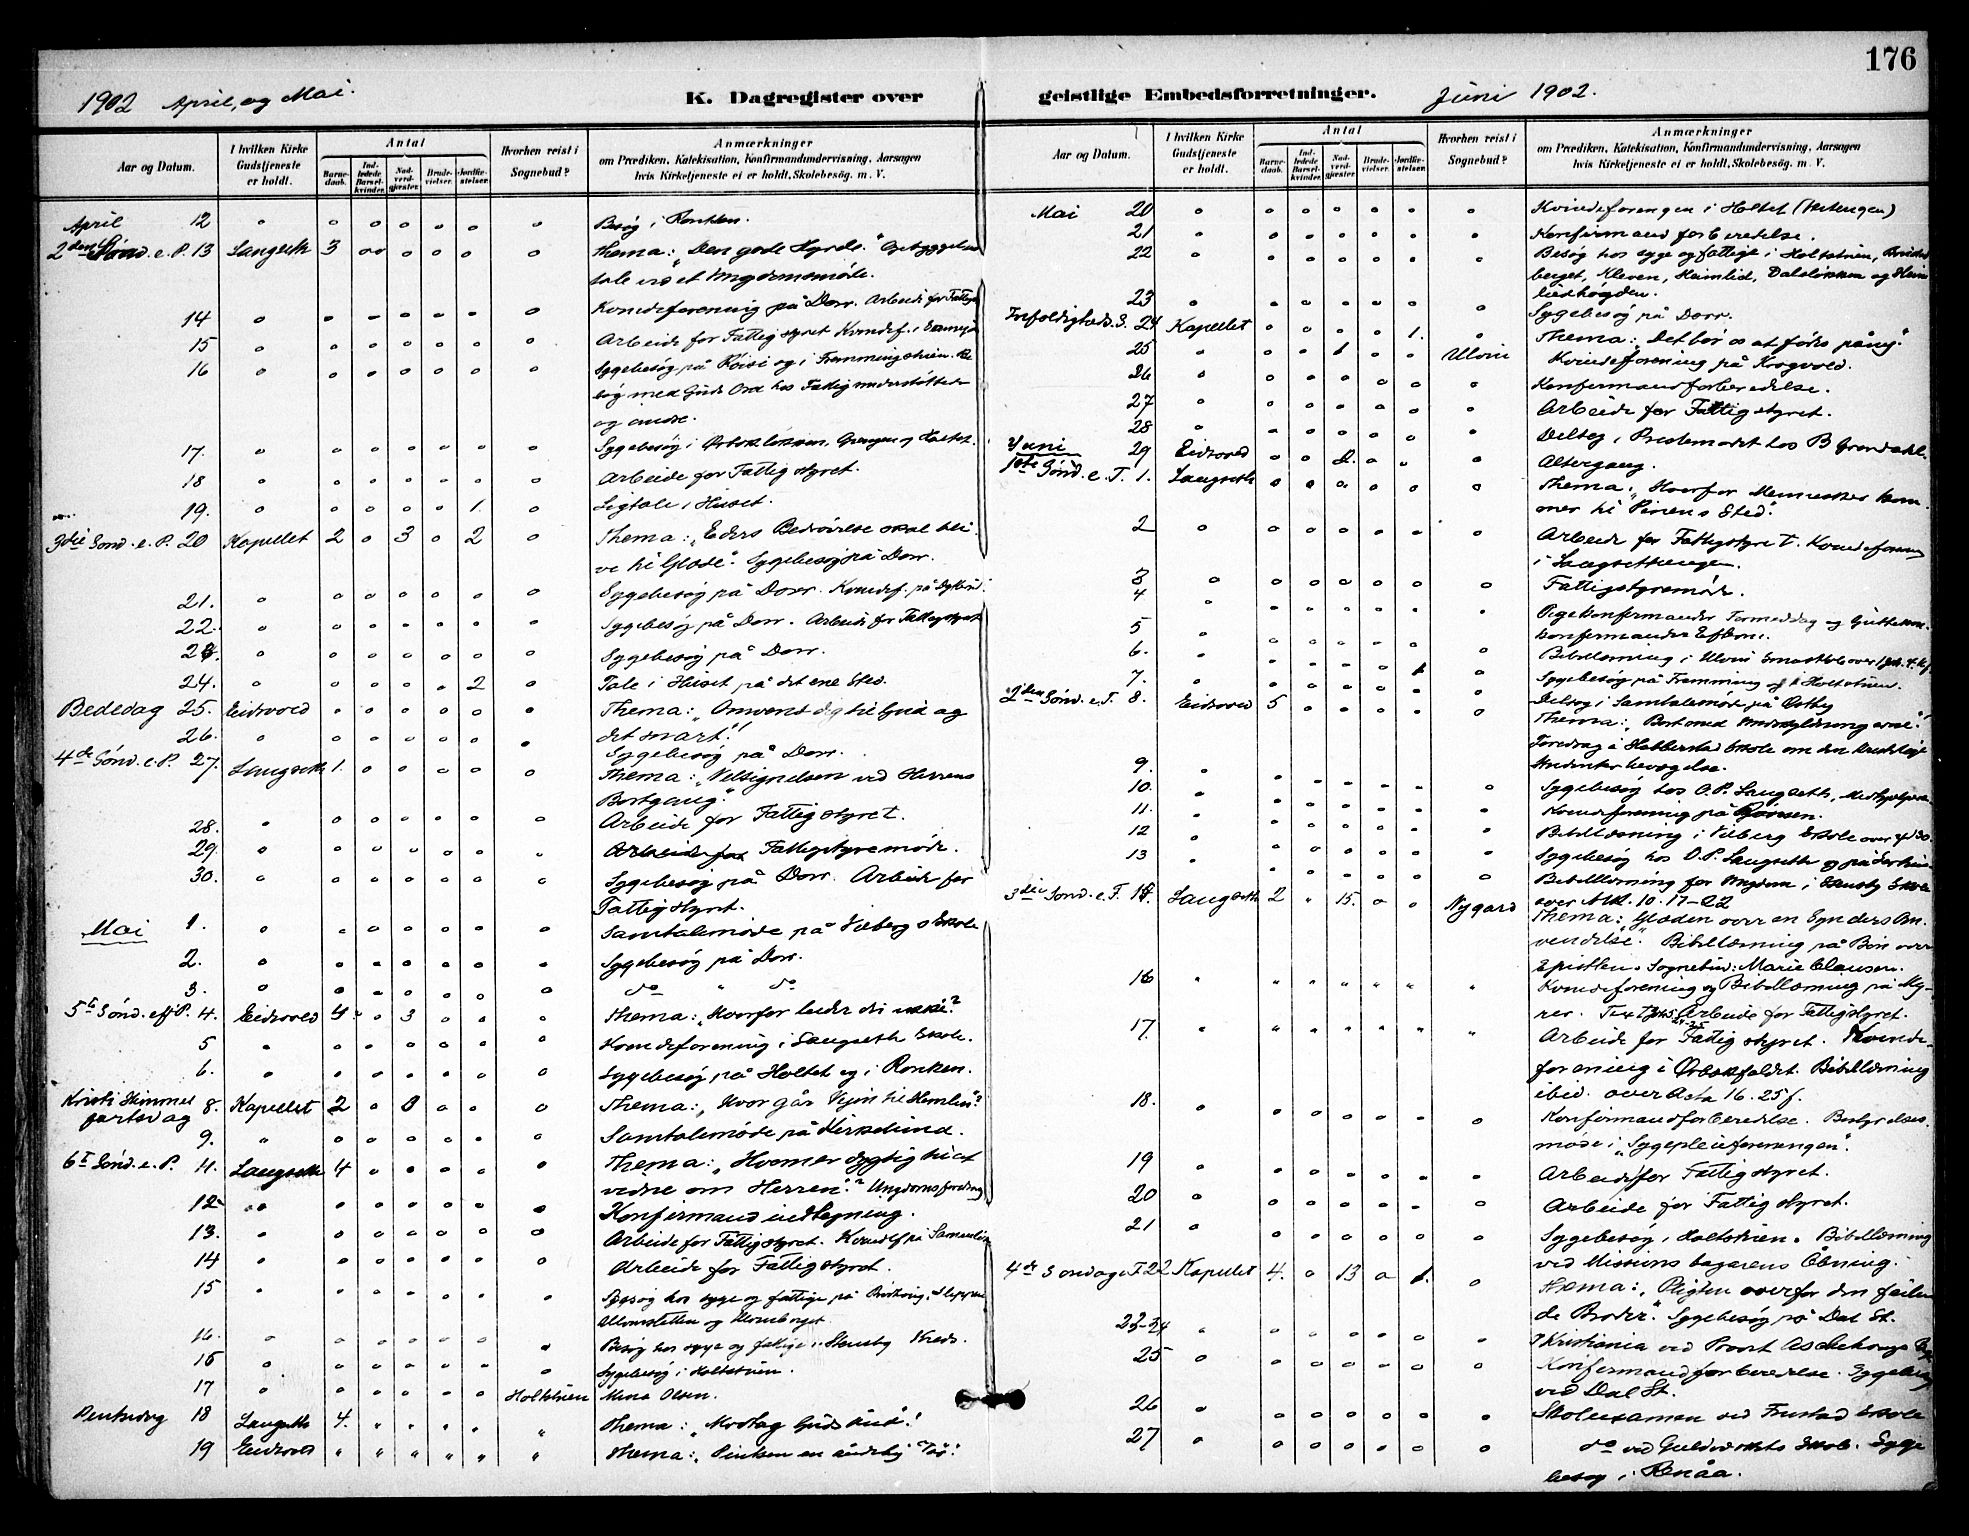 176
1902 April, og Mai.
K. Dagregister over
geistlige Embedsforretninger.
Juni 1902.
Aar og Datum.
I hvilken Kirke Gudstjeneste er holdt.
Antal
Barnedaab.
Indledede Barselkvinder.
Nadverdgjæster.
Brudevielser.
Jordfæstelser.
Hvorhen reist i Sognebud?
Anmærkninger
om Prædiken, Katekisation, Konfirmandundervisning, Aarsagen
hvis Kirketjeneste ei er holdt, Skolebesög. m. V.
April 12 o o o o o o o Besøg i Ronken.
2den Sønd. e. P. 13 Langseth 3 o o o o o o Thema: "Den gode Hyrde."
tale ved et Ungdomsmøde.
14 o o o o o o o Kvindeforening på Dorr. Arbeide for Fattig
15 o o o o o o o Arbeide for Fattigstyret Kvindef. i
16 o o o o o o Sygebesøg på og i Be
søg med Guds Ord hos Fattigunderstøttede
og andre.
17. o o o o o o o Sygebesøg i og Holtet.
18 o o o o o o o Arbeide for Fattigstyret.
19. o o o o o 1. o Ligtale i Huset.
3die Sønd. e. P. 20 Kapellet 2 o 3 o 2 o Thema: "Eders Bedrøvelse skal bli
ve til Glæde". Sygebesøg på Dorr.
21. o o o o o o o Sygebesøg på Dorr. Kvindef. på
22. o o o o o o o Sygebesøg på Dorr. Arbeide for Fattigstyret
23. o o o o o o o Sygebesøg på Dorr.
24. o o o o o 2 o Tale i Huset på det ene Sted.
Bededag 25. Eidsvold o o o o o o Thema: "Omvend dig til Gud og
det snart!"
26. o o o o o o o Sygebesøg på Dorr.
4de Sønd. e. P. 27. Langseth 1. o o o o o Thema: "Velsignelsen ved Herrens
Bortgang."
28. o o o o o o o Arbeide for Fattigstyret.
29. o o o o o o Arbeide for Fattigstyremøde.
30. o o o o o o o Sygebesøg på Dorr. Arbeide for
Fattigstyret.
Mai 1. o o o o o o o Samtalemøde på Vilberg Skole
2. o o o o o o o Sygebesøg på Dorr.
3. o o o o o o o do " do
5te Sønd. eft P. 4. Eidsvold 4 3 o Thema: "Hvorfor beder du ikke?"
5 o o o o o o o Kvindeforening i Langseth Skole.
6. o o o o o o o Sygebesøg på Holtet og i Ronken.
Kristi Himmel
fartsdag 8. Kapellet 2 o 8 o o o Thema: "Hvor går Vejen til Himlen?"
9. o o o o o o Samtalemøde på
6te Sønd. e. P. 11. Langseth 4 o o o o o Thema: "Hvem er dygtig til at
vidne om Herren"? Ungdomsforedrag
12 o o o o o o o Konfirmandindtegning.
13. o o o o o o o Arbeide for Fattigstyret. Kvindef på
14 o o o o o o o Arbeide for Fattigstyret.
15 o o o o o o o Besøg hos syge og fattige på
og
16. o o o o o o Besøg hos syge og fattige i Stensby Kreds.
16 o o o o o o o Sygebesøg i Holtstien.
17 o o o o o o Holtstien Mina Olsen.
Pintsedag 18 Langseth 4. " " " " " Thema: "Modtag Guds Ånd!"
19 Eidsvold " " " " " " Thema: "Pintsen en åndelig Vår."
Aar og Datum.
I hvilken Kirke Gudstjeneste er holdt.
Antal
Barnedaab.
Indledede Barselkvinder.
Nadverdgjæster.
Brudevielser.
Jordfæstelser.
Hvorhen reist i Sognebud?
Anmærkninger
om Prædiken, Katekisation, Konfirmandundervisning, Aarsagen
hvis Kirketjeneste ei er holdt, Skolebesög. m. V.
Mai 20 o o o o o o o Kvindeforengen i Holtet
21 o o o o o o o Konfirmandforberedelse.
22 o o o o o o o Besøg hos syge og fattige i Holtstien,
berget, Kleven, Heimlid, Dalsløkken og
23 o o o o o o o Sygebesøg på Dorr.
Trefoldigheds. S. 24 Kapellet o o o o 1. o Thema: "Det bør os at fødes påny."
25 o o o 1 o o Ulvin Kvindeforening på Krogvold.
26 o o o o o o o Konfirmandforberedelse.
27 o o o o o o o Arbeide for Fattigstyret.
28 o o o o o o o Deltog i Prestemødet hos B Grøndahl.
Juni 29 Eidsvold o o o o Altergang.
1ste Sønd. e. T. 1. Langseth o o o o o o Thema: "Hvorfor Mennesker kom
mer til Pinens Sted".
2 o o o o o o o Arbeide for Fattigstyret. Kvindeforen
i
3 o o o o o o o Fattigstyremøde.
4 o o o o o o o Pigekonfirmander Formiddag og Guttekon
konfirmander Efterm.
5 o o o o o o o Bibellæsning i Ulvin Småskole over
6. o o o o o 1 o Sygebesøg på Fremming og i Holtstien.
7. o o o o o o o Deltog i Samtalemøde på
2den Sønd. e. T. 8. Eidsvold 5 o o o o Thema: "Bort med Undskyldningerne!"
Foredrag i Habberstad Skole om den kristelige
Studenterbevægelse.
9. o o o o o o o Sygebesøg hos O.P. Langseth,
10. o o o o o o o Kvindeforening på
11. o o o o o o o Bibellæsning i Vilberg Skole over
12 o o o o o o o Sygebesøg hos O.P. Langseth og på
13 o o o o o o o Bibellæsning for Ungdom i Stensby Skole
over Mk. 10. 17-22
3die Sønd. e. T. 15. Langseth 2 " 15. o o Nygard Thema: "Glæden over en Synders Om
vendelse". Bibellæsning på Bøn over
Epistlen. Sognebud: Marie Clausen.
16 o " " " " " " Kvindeforening og Bibellæsning på My-
rer. Arbeide for Fattigstyret.
17. " " " " " " " Arbeide for Fattigstyret. Kvinde-
forening i Bibellæsning
ibid. over Acta 16. 25f.
18. o o o o o o o Konfirmandforberedelse. Bestyrelses
møde i "Sygepleieforeningen".
19 o o o o o o o Arbeide for Fattigstyret.
20 o o o o o o o Arbeide for Fattigstyret.
21 o o o o o o o Sygebesøg i Holtstien. Bibellæsning
ved Missionsbasarens Åbning.
4de Søndag e. T. 22 Kapellet 4. o 13 o 1. o Thema: "Pligten overfor den feilen
de Broder". Sygebesøg på Dal St.
23-24 " o o o o o o I Kristiania ved Provst
25 o o o o o o o Konfirmandforberedelse. Sygebesøg
ved Dal St.
26 o o o o o o o Skoleexamen ved Frustad Skole
27 o o o o o o o do ved Guldverkets Skole. Syge
besøg i Renåa.